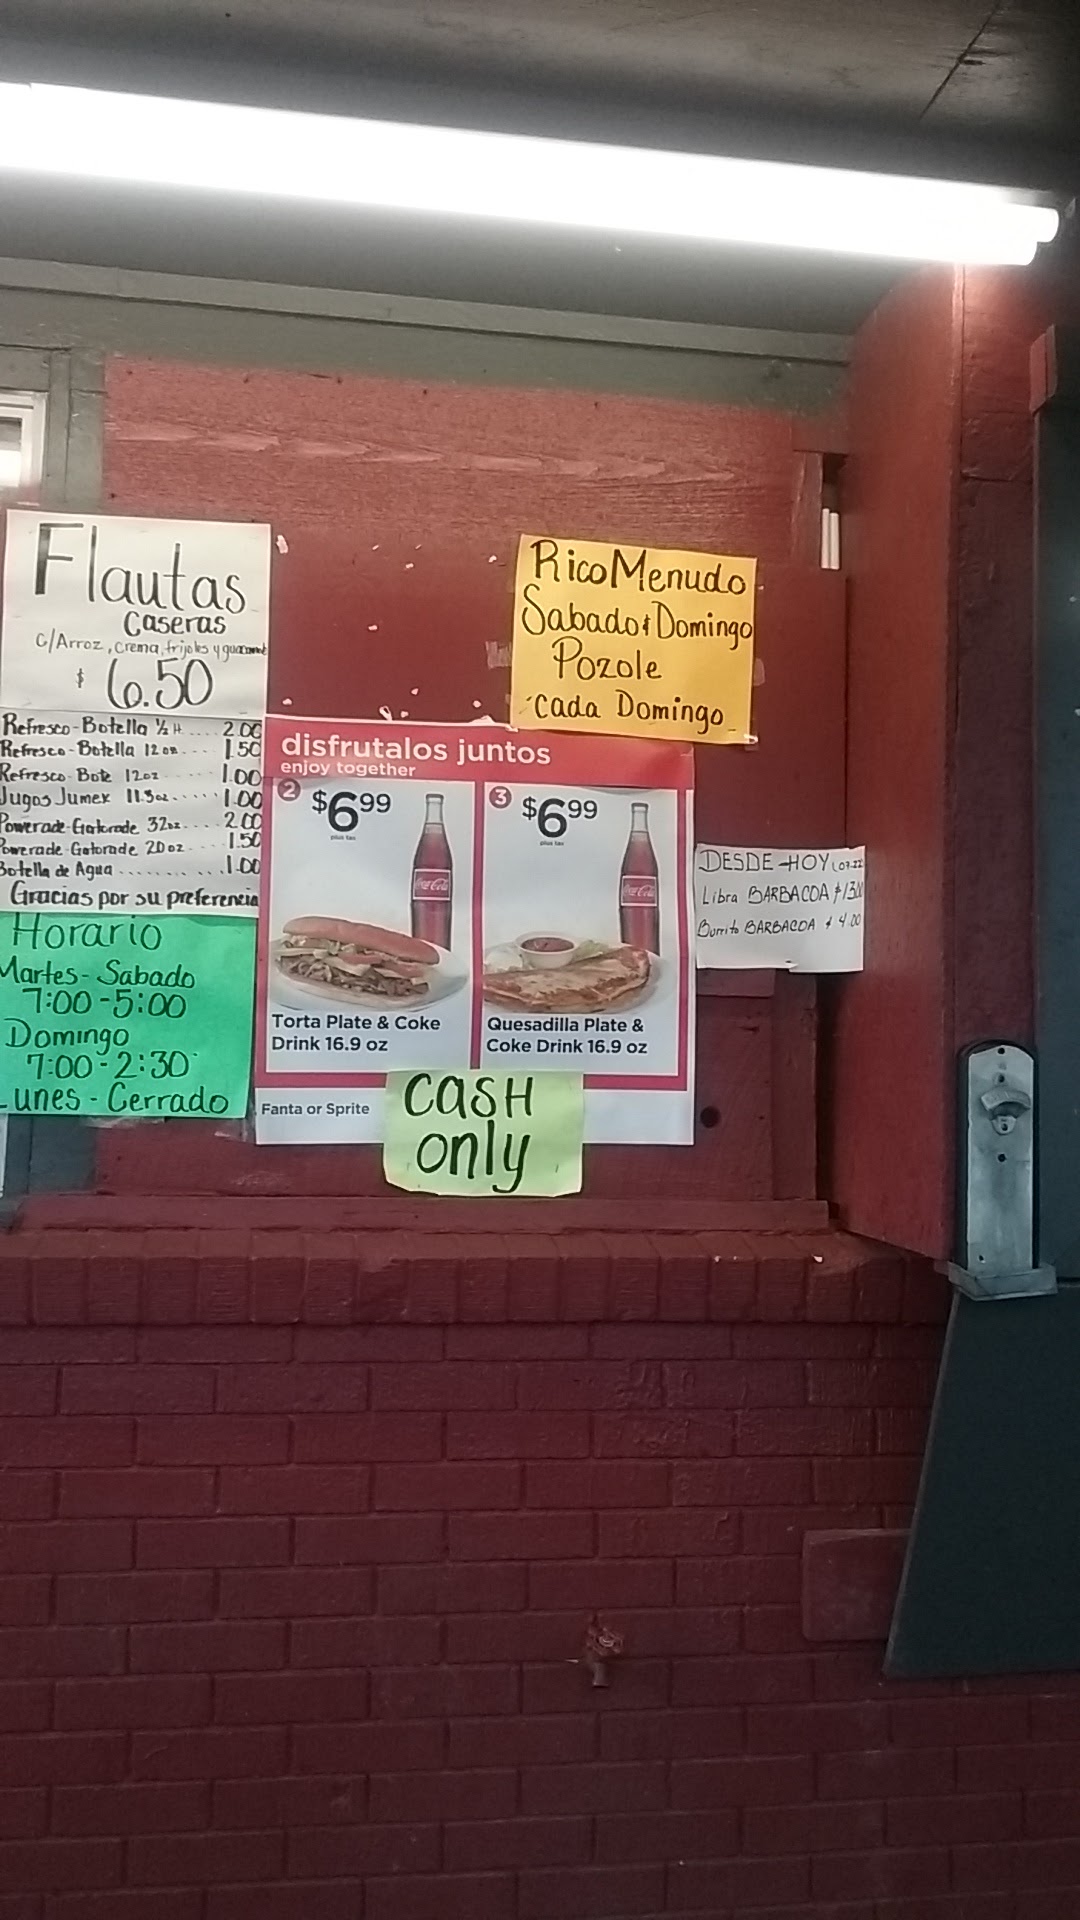 Flautas
Caseras
C/Arroz, crema, frijoles y
$ 6.50
Refresco-Botella ½ .... 2.00
Refresco-Botella 12 on.... 1.50
Refresco-Bote 12oz ..... 1.00
Jugos Jumex 11.3oz..... 1.00
Powerade-Gatorade 32oz.... 2.00
Powerade-Gatorade 20oz.... 1.50
Botella de Agua .......... 1.00
Gracias por su preferencia
Horario
Martes-Sabado
7:00-5:00
Domingo
7:00-2:30
Lunes-Cerrado
Rico Menudo
Sabado & Domingo
Pozole
cada Domingo
disfrutalos juntos
enjoy together
2 $6.99
plus tax
Coca-Cola
Torta Plate & Coke
Drink 16.9 oz
3 $6.99
plus tax
Coca-Cola
Quesadilla Plate &
Coke Drink 16.9 oz
Fanta or Sprite
CASH
only
DESDE-HOY
Libra BARBACOA $13.00
Burrito BARBACOA $4.00